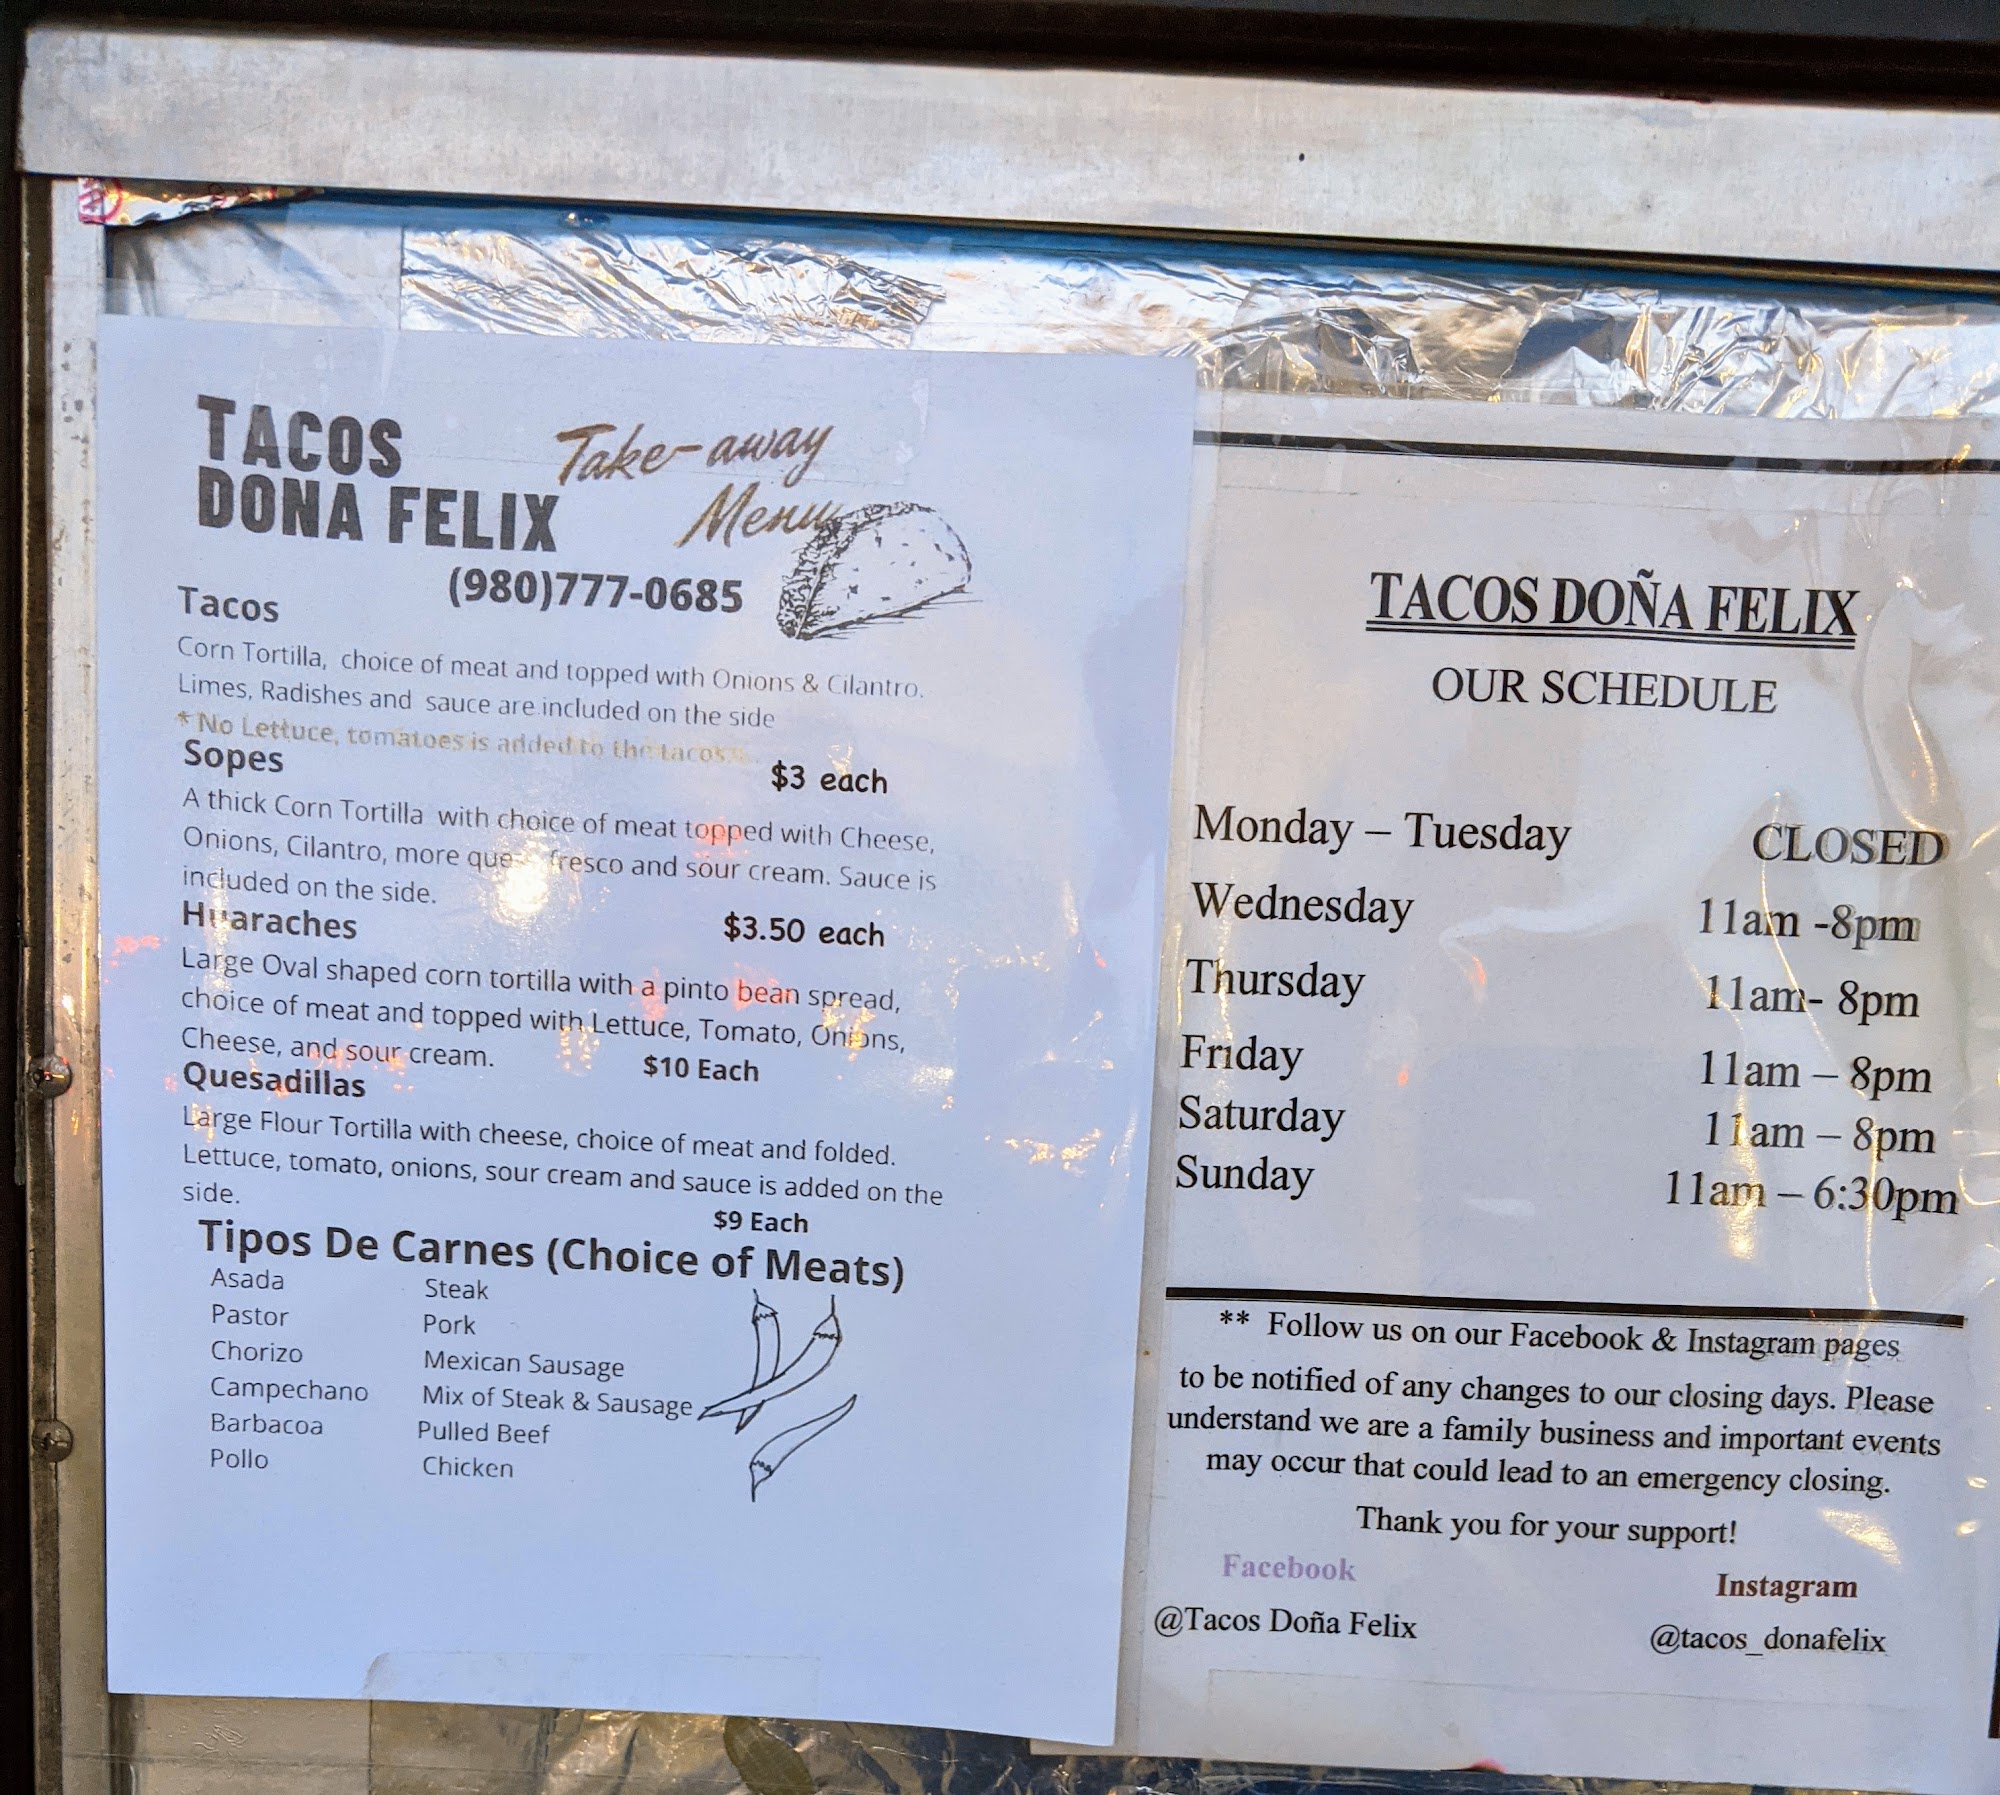 TACOS
DONA FELIX
Take-away
Menu
(980)777-0685
Tacos
Corn Tortilla, choice of meat and topped with Onions & Cilantro.
Limes, Radishes and sauce are included on the side
* No Lettuce, tomatoes is added to the tacos
$3 each
Sopes
A thick Corn Tortilla with choice of meat topped with Cheese,
Onions, Cilantro, more fresco and sour cream. Sauce is
included on the side.
$3.50 each
Huaraches
Large Oval shaped corn tortilla with a pinto bean spread,
choice of meat and topped with Lettuce, Tomato, Onions,
Cheese, and sour cream.
$10 Each
Quesadillas
Large Flour Tortilla with cheese, choice of meat and folded.
Lettuce, tomato, onions, sour cream and sauce is added on the
side.
$9 Each
Tipos De Carnes (Choice of Meats)
Asada Steak
Pastor Pork
Chorizo Mexican Sausage
Campechano Mix of Steak & Sausage
Barbacoa Pulled Beef
Pollo Chicken
TACOS DOÑA FELIX
OUR SCHEDULE
Monday – Tuesday CLOSED
Wednesday 11am -8pm
Thursday 11am- 8pm
Friday 11am – 8pm
Saturday 11am – 8pm
Sunday 11am – 6:30pm
** Follow us on our Facebook & Instagram pages
to be notified of any changes to our closing days. Please
understand we are a family business and important events
may occur that could lead to an emergency closing.
Thank you for your support!
Facebook Instagram
@Tacos Doña Felix @tacos_donafelix